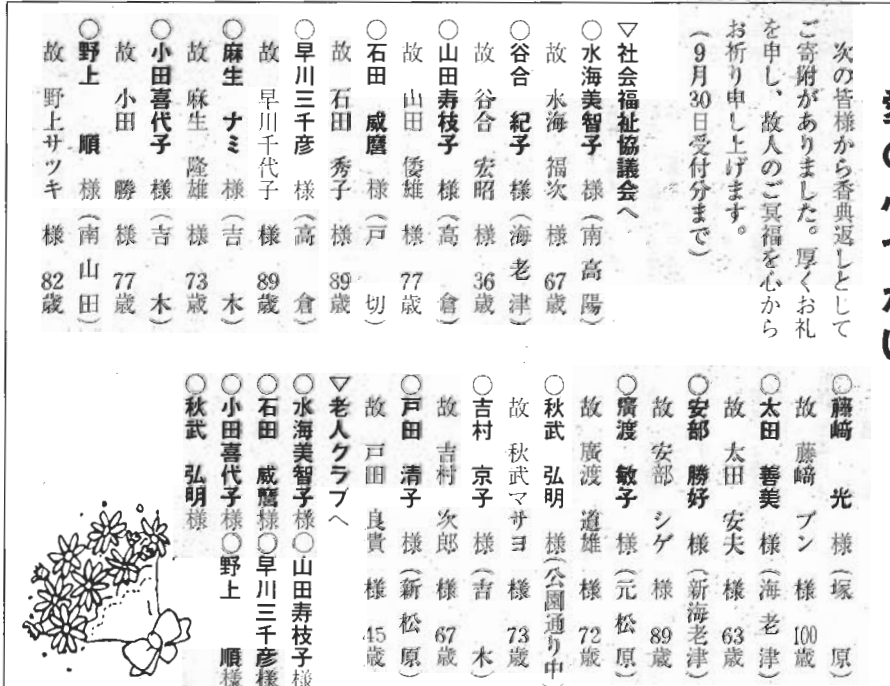 次の皆様から香典返しとして
ご寄附がありました。厚くお礼
を申し、故人のご冥福を心から
お祈り申し上げます。
(9月30日受付分まで)
▽社会福祉協議会へ
○水海美智子 様(南高陽)
故 水海 福次 様 67歳
○谷合 紀子 様(海老津)
故 谷合 宏昭 様 36歳
○山田寿枝子 様(高 倉)
故 山田 倭雄 様 77歳
○石田 威麿 様(戸 切)
故 石田 秀子 様 89歳
○早川三千彦 様(高 倉)
故 早川千代子 様 89歳
○麻生 ナミ 様(吉 木)
故 麻生 隆雄 様 73歳
○小田喜代子 様(吉 木)
故 小田 勝 様 77歳
○野上 順 様(南山田)
故 野上サツキ 様 82歳
○藤﨑 光 様(塚 原)
故 藤﨑 ブン 様 100歳
○太田 善美 様(海老津)
故 太田 安夫 様 63歳
○安部 勝好 様(新海老津)
故 安部 シゲ 様 89歳
○廣渡 敏子 様(元松原)
故 廣渡 道雄 様 72歳
○秋武 弘明 様(公園通り中)
故 秋武マサヨ 様 73歳
○吉村 京子 様(吉 木)
故 吉村 次郎 様 67歳
○戸田 清子 様(新松原)
故 戸田 良貴 様 45歳
▽老人クラブへ
○水海美智子様○山田寿枝子様
○石田 威麿様○早川三千彦様
○小田喜代子様○野上 順様
○秋武 弘明様